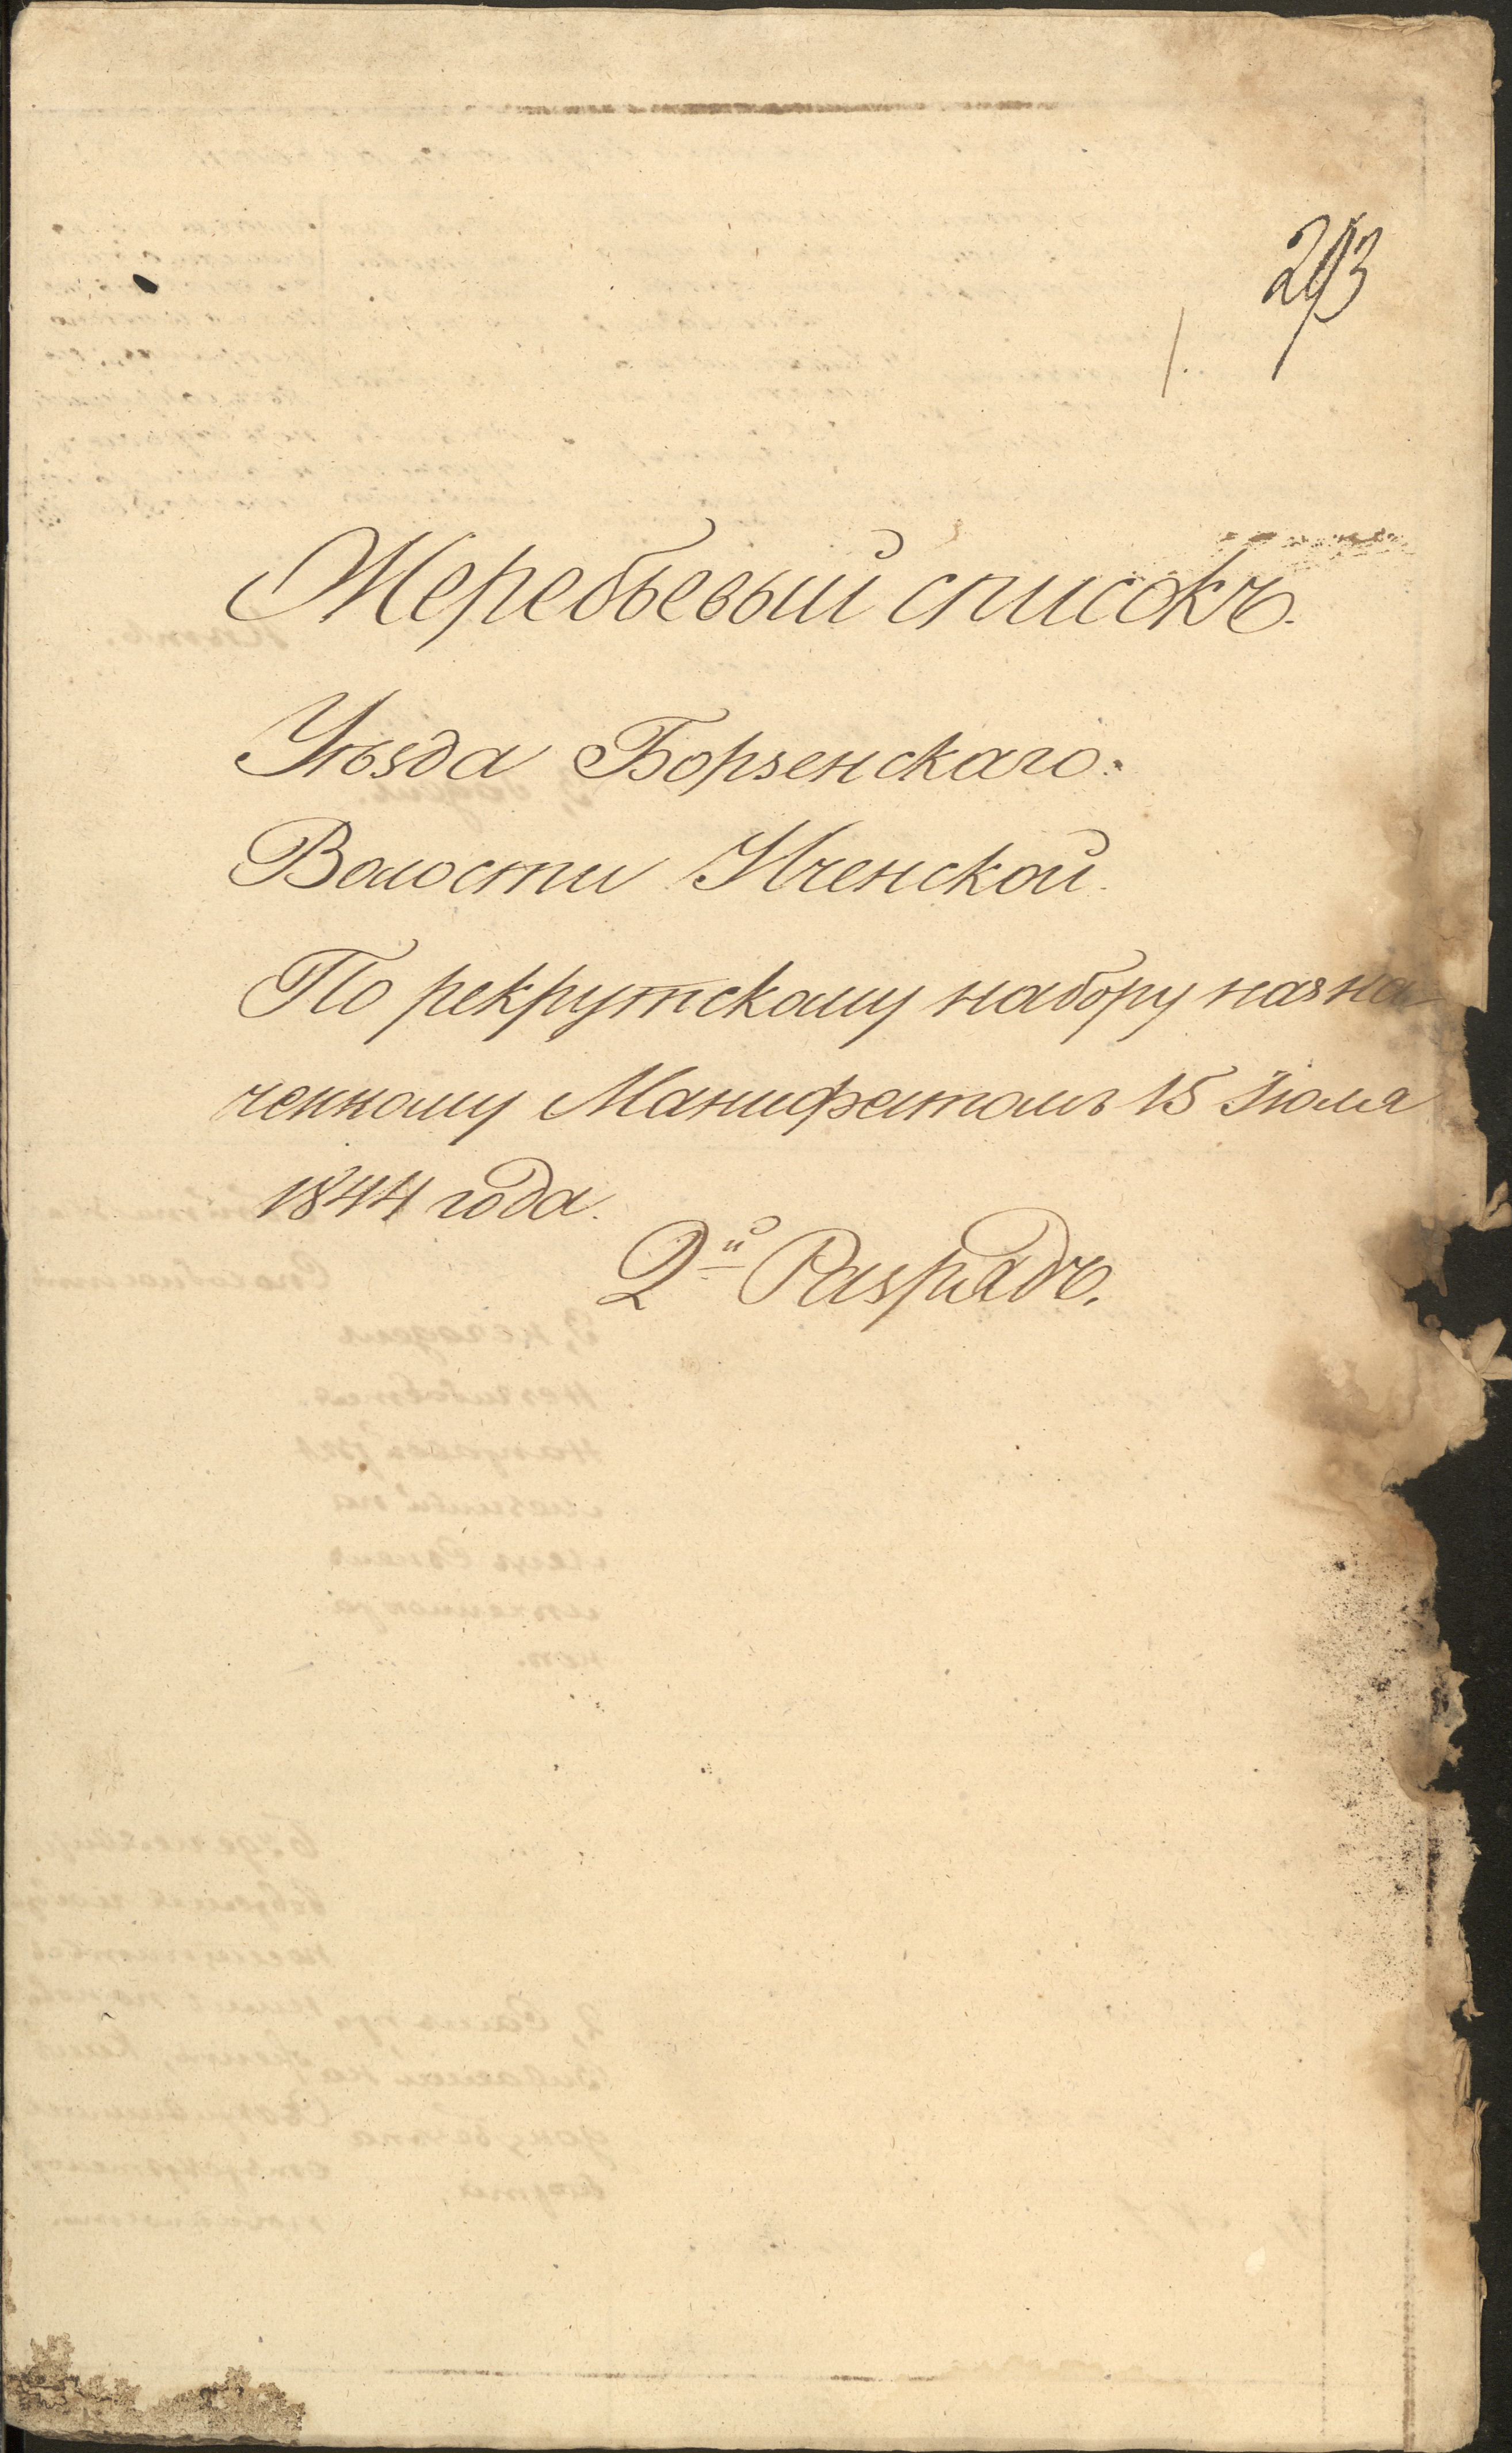 293
1.
Жеребьевый списокъ.
Уѣзда Борзенскаго.
Волости Иченской.
По рекрутскому набору назна
ченному Манифестомъ 15 Іюля
1844 года.
2й Разрядъ.